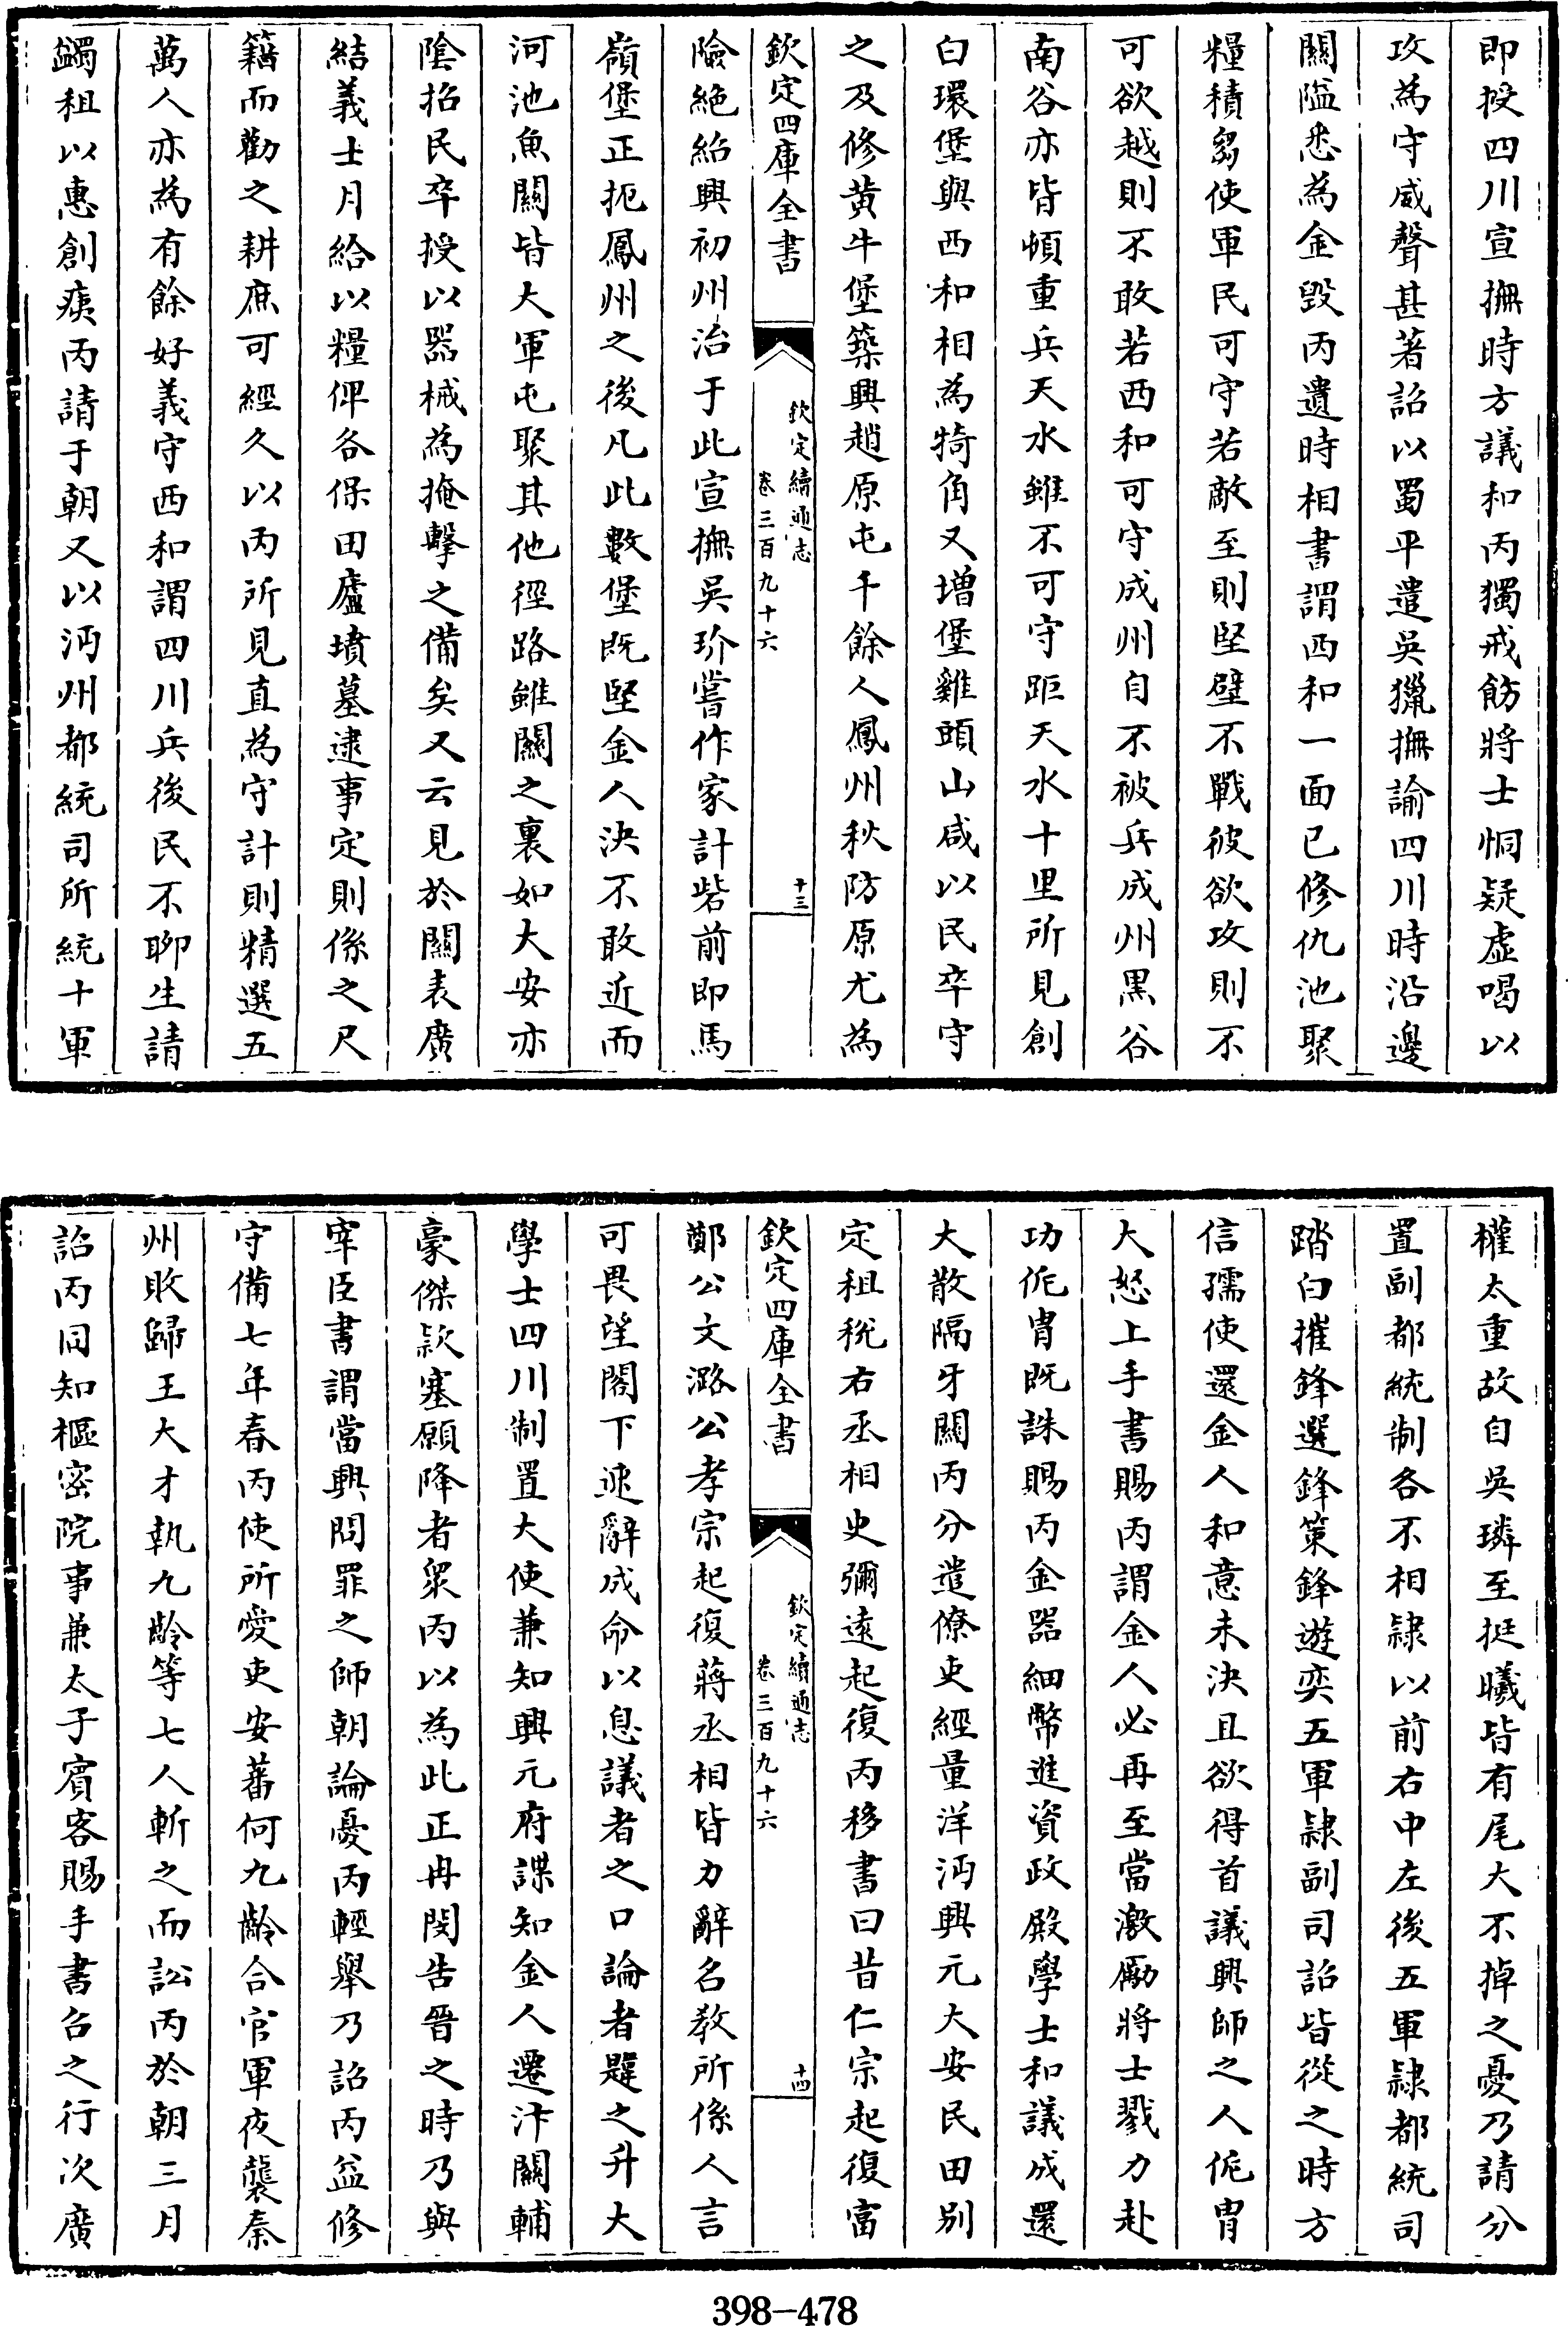 即授四川宣撫時方議和丙獨戒飭將士恫疑虛喝以
攻為守威聲甚著詔以蜀平遣吳獵撫諭四川時沿邊
關隘悉為金毀丙遺時相書謂西和一面已修仇池聚
糧積芻使軍民可守若敵至則堅壁不戰彼欲攻則不
可欲越則不敢若西和可守成州自不被兵成州黑谷
南谷亦皆頓重兵天水雖不可守距天水十里所見創
白環堡與西和相為犄角又增堡雞頭山咸以民卒守
之及修黃牛堡築興趙原屯千餘人鳳州秋防原尤為
欽定四庫全書
欽定續通志
卷三百九十六
十三
險絶紹興初州治于此宣撫吳玠嘗作家計砦前即馬
嶺堡正扼鳳州之後凡此數堡既堅金人決不敢近而
河池魚關皆大軍屯聚其他徑路雖關之裏如大安亦
隂招民卒授以器械為掩擊之備矣又云見於關表廣
結義士月給以糧俾各保田廬墳墓逮事定則係之尺
籍而勸之耕庶可經久以丙所見直為守計則精選五
萬人亦為有餘好義守西和謂四川兵後民不聊生請
蠲租以惠創痍丙請于朝又以沔州都統司所統十軍
權太重故自吳璘至挺曦皆有尾大不掉之憂乃請分
置副都統制各不相隸以前右中左後五軍隸都統司
踏白摧鋒選鋒策鋒遊奕五軍隸副司詔皆從之時方
信孺使還金人和意未決且欲得首議興師之人侂冑
大怒上手書賜丙謂金人必再至當激勵將士戮力赴
功侂冑既誅賜丙金器細幣進資政殿學士和議成還
大散隔牙關丙分遣僚吏經量洋沔興元大安民田别
定租稅右丞相史彌遠起復丙移書曰昔仁宗起復富
欽定四庫全書
欽定續通志
卷三百九十六
十四
鄭公文潞公孝宗起復蔣丞相皆力辭名教所係人言
可畏望閣下速辭成命以息議者之口論者韙之升大
學士四川制置大使兼知興元府諜知金人遷汴關輔
豪傑款塞願降者衆丙以為此正冉閔告晉之時乃與
宰臣書謂當興問罪之師朝論憂丙輕舉乃詔丙益修
守備七年春丙使所愛吏安蕃何九齡合官軍夜襲秦
州敗歸王大才執九齡等七人斬之而訟丙於朝三月
詔丙同知樞密院事兼太子賓客賜手書召之行次廣
398-478